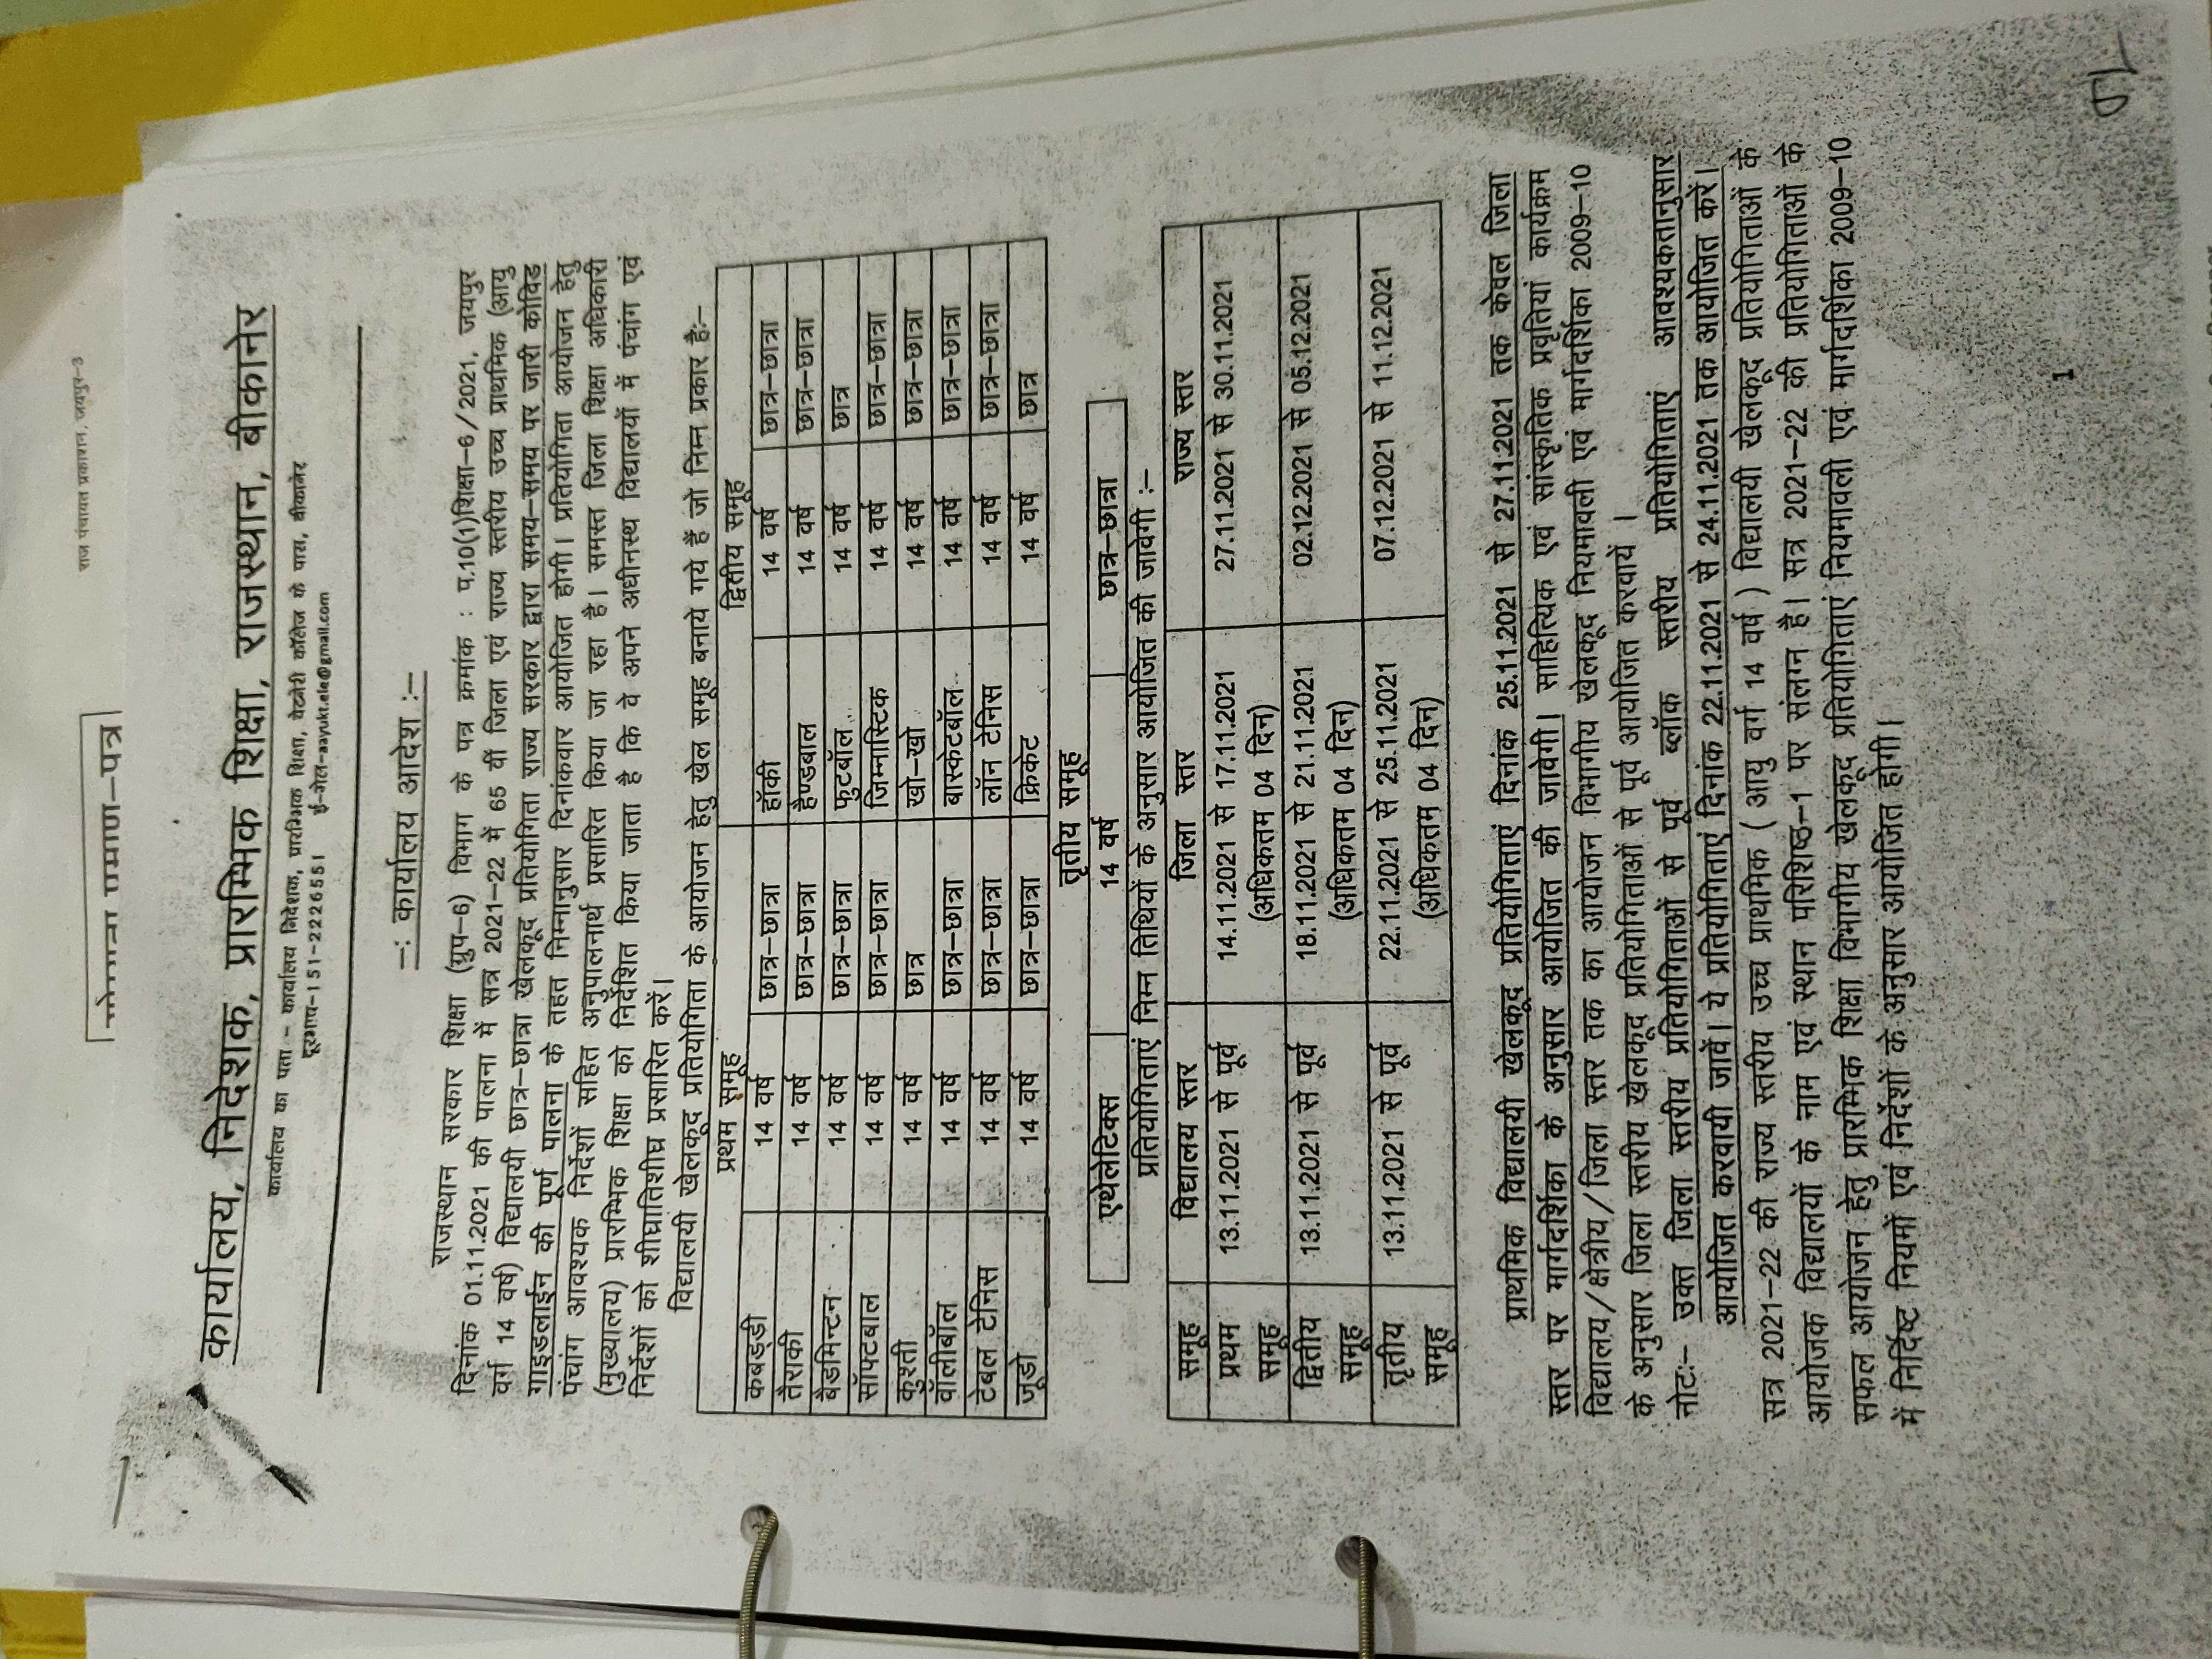 राज पंचायत प्रकाशन, जयपुर-3
कार्यालय, निदेशक, प्रारम्भिक शिक्षा, राजस्थान, बीकानेर
कार्यालय का पता - कार्यालय निदेशक, प्रारम्भिक शिक्षा, वेटनेरी कॉलेज के पास, बीकानेर
दूरभाष-151-2226551 ई-मेल-aayukt.ele@gmail.com
-: कार्यालय आदेश :-
राजस्थान सरकार शिक्षा (ग्रुप-6) विभाग के पत्र क्रमांक : प.10(1)शिक्षा-6/2021, जयपुर
दिनांक 01.11.2021 की पालना में सत्र 2021-22 में 65 वीं जिला एवं राज्य स्तरीय उच्च प्राथमिक (आयु
वर्ग 14 वर्ष) विद्यालयी छात्र-छात्रा खेलकूद प्रतियोगिता राज्य सरकार द्वारा समय-समय पर जारी कोविड
गाइडलाईन की पूर्ण पालना के तहत निम्नानुसार दिनांकवार आयोजित होगी। प्रतियोगिता आयोजन हेतु
पंचांग आवश्यक निर्देशों सहित अनुपालनार्थ प्रसारित किया जा रहा है। समस्त जिला शिक्षा अधिकारी
(मुख्यालय) प्रारम्भिक शिक्षा को निर्देशित किया जाता है कि वे अपने अधीनस्थ विद्यालयों में पंचांग एवं
निर्देशों को शीघ्रातिशीघ्र प्रसारित करें।
विद्यालयी खेलकूद प्रतियोगिता के आयोजन हेतु खेल समूह बनाये गये हैं जो निम्न प्रकार है:-
प्रथम समूह द्वितीय समूह
कबड्डी 14 वर्ष छात्र-छात्रा हॉकी 14 वर्ष छात्र-छात्रा
तैराकी 14 वर्ष छात्र-छात्रा हैण्डबाल 14 वर्ष छात्र-छात्रा
बैडमिन्टन 14 वर्ष छात्र-छात्रा फुटबॉल 14 वर्ष छात्र
सॉफ्टबाल 14 वर्ष छात्र-छात्रा जिम्नास्टिक 14 वर्ष छात्र-छात्रा
कुश्ती 14 वर्ष छात्र खो-खो 14 वर्ष छात्र-छात्रा
वॉलीबॉल 14 वर्ष छात्र-छात्रा बास्केटबॉल 14 वर्ष छात्र-छात्रा
टेबल टेनिस 14 वर्ष छात्र-छात्रा लॉन टेनिस 14 वर्ष छात्र-छात्रा
जूडो 14 वर्ष छात्र-छात्रा क्रिकेट 14 वर्ष छात्र
तृतीय समूह
एथेलेटिक्स 14 वर्ष छात्र-छात्रा
प्रतियोगिताएं निम्न तिथियों के अनुसार आयोजित की जावेगी :-
समूह विद्यालय स्तर जिला स्तर राज्य स्तर
प्रथम 13.11.2021 से पूर्व 14.11.2021 से 17.11.2021 27.11.2021 से 30.11.2021
समूह (अधिकतम 04 दिन)
द्वितीय 13.11.2021 से पूर्व 18.11.2021 से 21.11.2021 02.12.2021 से 05.12.2021
समूह (अधिकतम 04 दिन)
तृतीय 13.11.2021 से पूर्व 22.11.2021 से 25.11.2021 07.12.2021 से 11.12.2021
समूह (अधिकतम 04 दिन)
प्राथमिक विद्यालयी खेलकूद प्रतियोगिताएं दिनांक 25.11.2021 से 27.11.2021 तक केवल जिला
स्तर पर मार्गदर्शिका के अनुसार आयोजित की जावेगी। साहित्यिक एवं सांस्कृतिक प्रवृतियां कार्यक्रम
विद्यालय/क्षेत्रीय/जिला स्तर तक का आयोजन विभागीय खेलकूद नियमावली एवं मार्गदर्शिका 2009-10
के अनुसार जिला स्तरीय खेलकूद प्रतियोगिताओं से पूर्व आयोजित करवायें ।
नोट:- उक्त जिला स्तरीय प्रतियोगिताओं से पूर्व ब्लॉक स्तरीय प्रतियोगिताएं आवश्यकतानुसार
आयोजित करवायी जावें। ये प्रतियोगिताएं दिनांक 22.11.2021 से 24.11.2021 तक आयोजित करें।
सत्र 2021-22 की राज्य स्तरीय उच्च प्राथमिक ( आयु वर्ग 14 वर्ष ) विद्यालयी खेलकूद प्रतियोगिताओं के
आयोजक विद्यालयों के नाम एवं स्थान परिशिष्ठ-1 पर संलग्न है। सत्र 2021-22 की प्रतियोगिताओं के
सफल आयोजन हेतु प्रारम्भिक शिक्षा विभागीय खेलकूद प्रतियोगिताएं नियमावली एवं मार्गदर्शिका 2009-10
में निर्दिष्ट नियमों एवं निर्देशों के अनुसार आयोजित होगी।
1